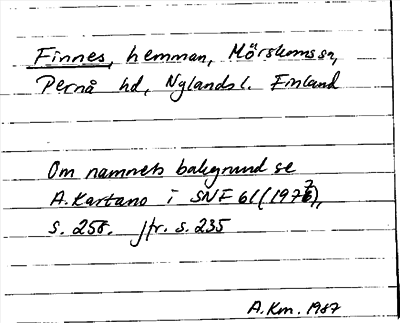 Finnes, hemman, Mörskoms sn,
Pernå hd, Nylands l. Finland
Om namnets bakgrund se
A. Kartano i SNF 61 (1977),
s. 258. Jfr. s. 235
A.Km. 1987